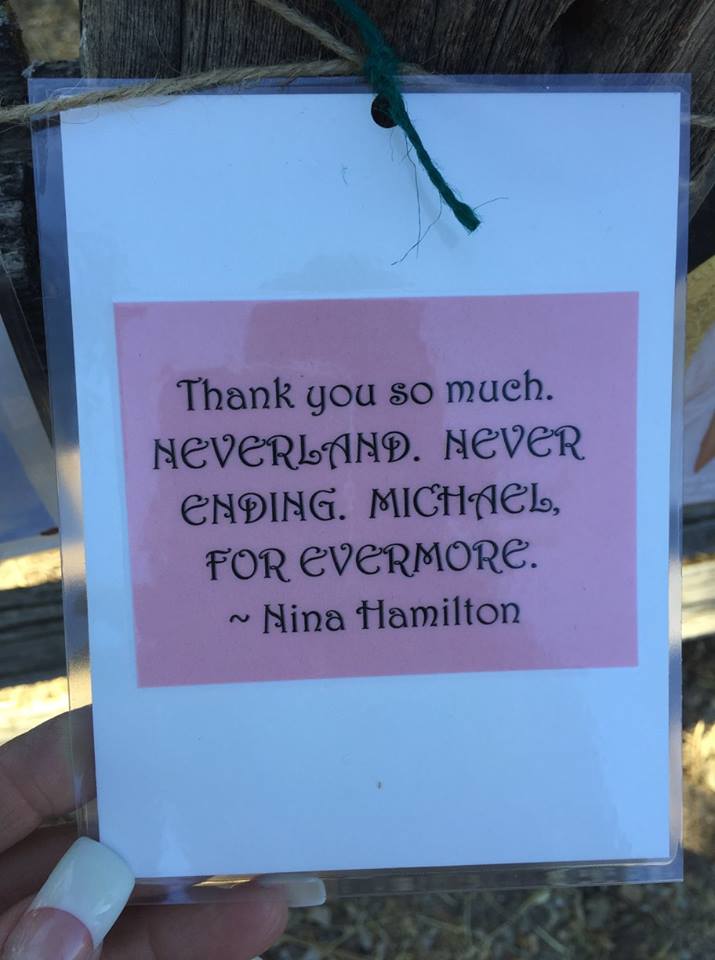 Thank you so much.
NEVERLAND. NEVER
ENDING. MICHAEL,
FOR EVERMORE.
~ Nina Hamilton